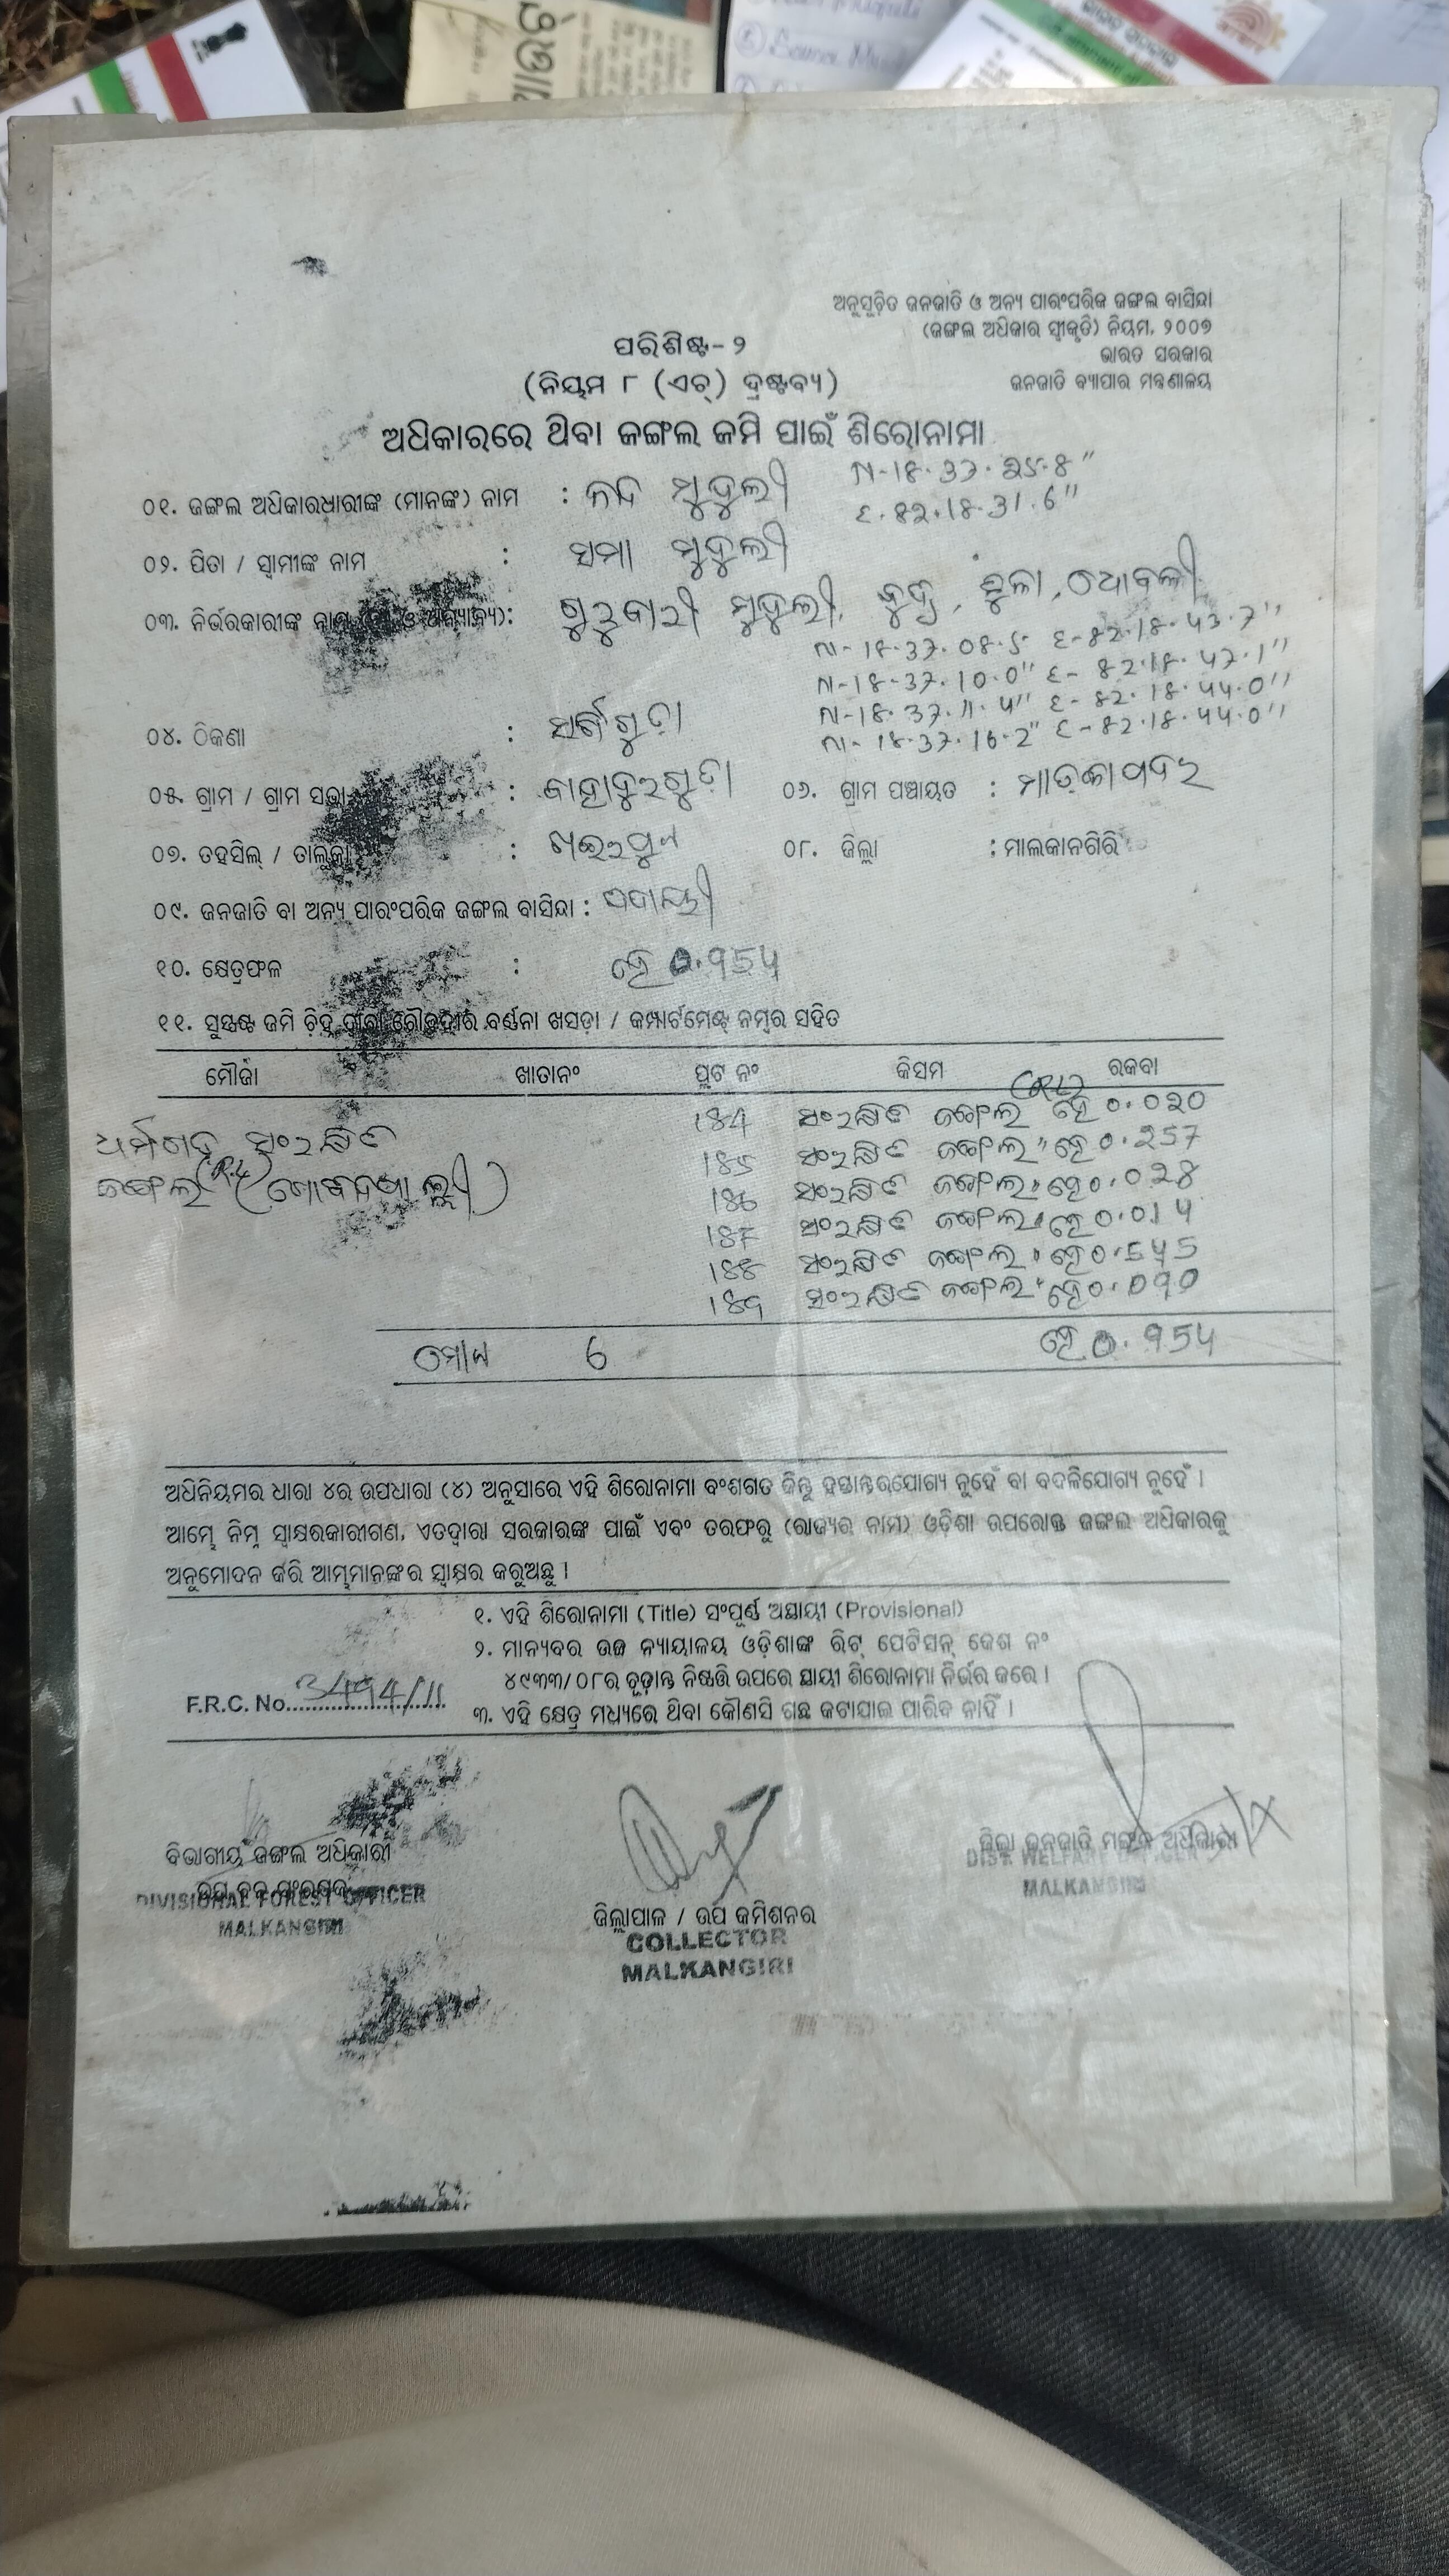 ଅନୁସୂଚିତ ଜନଜାତି ଓ ଅନ୍ୟ ପାରଂପରିକ ଜଙ୍ଗଲ ବାସିନ୍ଦା
(ଜଙ୍ଗଲ ଅଧିକାର ସ୍ୱୀକୃତି) ନିୟମ, ୨୦୦୭
ଭାରତ ସରକାର
ଜନଜାତି ବ୍ୟାପାର ମନ୍ତ୍ରଣାଳୟ
ପରିଶିଷ୍ଟ-୨
(ନିୟମ ୮ (ଏଚ୍) ଦ୍ରଷ୍ଟବ୍ୟ)
ଅଧିକାରରେ ଥିବା ଜଙ୍ଗଲ ଜମି ପାଇଁ ଶିରୋନାମା
୦୧. ଜଙ୍ଗଲ ଅଧିକାରଧାରୀଙ୍କ (ମାନଙ୍କ) ନାମ : ମୁଦୁଲୀ
E-82.18.31.6"
୦୨. ପିତା / ସ୍ୱାମୀଙ୍କ ନାମ : ସମା ମୁଦୁଲୀ
୦୩. ନିର୍ଭରକାରୀଙ୍କ ନାମ : ଗୁରୁବାରୀ ମୁଦୁଲୀ,
N-18-37.08.5 E-82.18.43.7"
N-18-37.10.0" E-82.18.47.1"
N-18.37.11.4" E-82.18.44.0"
N-18.37.16.2" E-82.18.44.0"
୦୪. ଠିକଣା :
୦୫. ଗ୍ରାମ / ଗ୍ରାମ ସଭା : ବାହାଦୁରଗୁଡ଼ା ୦୬. ଗ୍ରାମ ପଞ୍ଚାୟତ : ମାଡ଼କାପଦର
୦୭. ତହସିଲ୍ / ତାଲୁକା : ଖଇରପୁଟ ୦୮. ଜିଲ୍ଲା : ମାଲକାନଗିରି
୦୯. ଜନଜାତି ବା ଅନ୍ୟ ପାରଂପରିକ ଜଙ୍ଗଲ ବାସିନ୍ଦା :
୧୦. କ୍ଷେତ୍ରଫଳ : ହେ 0.954
୧୧. ସୁସ୍ପଷ୍ଟ ଜମି ଚିହ୍ନ ଦ୍ୱାରା ଚୌହଦ୍ଦୀର ବର୍ଣ୍ଣନା ଖସଡ଼ା / କମ୍ପାର୍ଟମେଣ୍ଟ ନମ୍ବର ସହିତ
ମୌଜା ଖାତାନଂ ପ୍ଲଟ ନଂ କିସମ ରକବା
184 ସଂରକ୍ଷିତ ଜଙ୍ଗଲ ହେ 0.020
ଧର୍ମଗଡ଼ ସଂରକ୍ଷିତ 185 ସଂରକ୍ଷିତ ଜଙ୍ଗଲ " ହେ 0.257
ଜଙ୍ଗଲ 186 ସଂରକ୍ଷିତ ଜଙ୍ଗଲ " ହେ 0.028
187 ସଂରକ୍ଷିତ ଜଙ୍ଗଲ " ହେ 0.014
188 ସଂରକ୍ଷିତ ଜଙ୍ଗଲ " ହେ 0.545
189 ସଂରକ୍ଷିତ ଜଙ୍ଗଲ " ହେ 0.090
ମୋଟ 6 ହେ 0.954
ଅଧିନିୟମର ଧାରା ୪ର ଉପଧାରା (୪) ଅନୁସାରେ ଏହି ଶିରୋନାମା ବଂଶଗତ କିନ୍ତୁ ହସ୍ତାନ୍ତରଯୋଗ୍ୟ ନୁହେଁ ବା ବଦଳିଯୋଗ୍ୟ ନୁହେଁ ।
ଆମ୍ଭେ ନିମ୍ନ ସ୍ୱାକ୍ଷରକାରୀଗଣ, ଏତଦ୍ୱାରା ସରକାରଙ୍କ ପାଇଁ ଏବଂ ତରଫରୁ (ରାଜ୍ୟର ନାମ) ଓଡ଼ିଶା ଉପରୋକ୍ତ ଜଙ୍ଗଲ ଅଧିକାରକୁ
ଅନୁମୋଦନ କରି ଆମ୍ଭମାନଙ୍କର ସ୍ୱାକ୍ଷର କରୁଅଛୁ ।
୧. ଏହି ଶିରୋନାମା (Title) ସଂପୂର୍ଣ୍ଣ ଅସ୍ଥାୟୀ (Provisional)
୨. ମାନ୍ୟବର ଉଚ୍ଚ ନ୍ୟାୟାଳୟ ଓଡ଼ିଶାଙ୍କ ରିଟ୍ ପେଟିସନ୍ କେଶ ନଂ
୪୯୩୩/୦୮ର ଚୂଡ଼ାନ୍ତ ନିଷ୍ପତ୍ତି ଉପରେ ସ୍ଥାୟୀ ଶିରୋନାମା ନିର୍ଭର କରେ ।
F.R.C. No. 3494/11
୩. ଏହି କ୍ଷେତ୍ର ମଧ୍ୟରେ ଥିବା କୌଣସି ଗଛ କଟାଯାଇ ପାରିବ ନାହିଁ ।
ବିଭାଗୀୟ ଜଙ୍ଗଲ ଅଧିକାରୀ
ଉପ ବନ ସଂରକ୍ଷକ
DIVISIONAL FOREST OFFICER
MALKANGIRI
ଜିଲ୍ଲାପାଳ / ଉପ କମିଶନର
COLLECTOR
MALKANGIRI
ଜିଲ୍ଲା ଜନଜାତି ମଙ୍ଗଳ ଅଧିକାରୀ
DIST. WELFARE OFFICER
MALKANGIRI